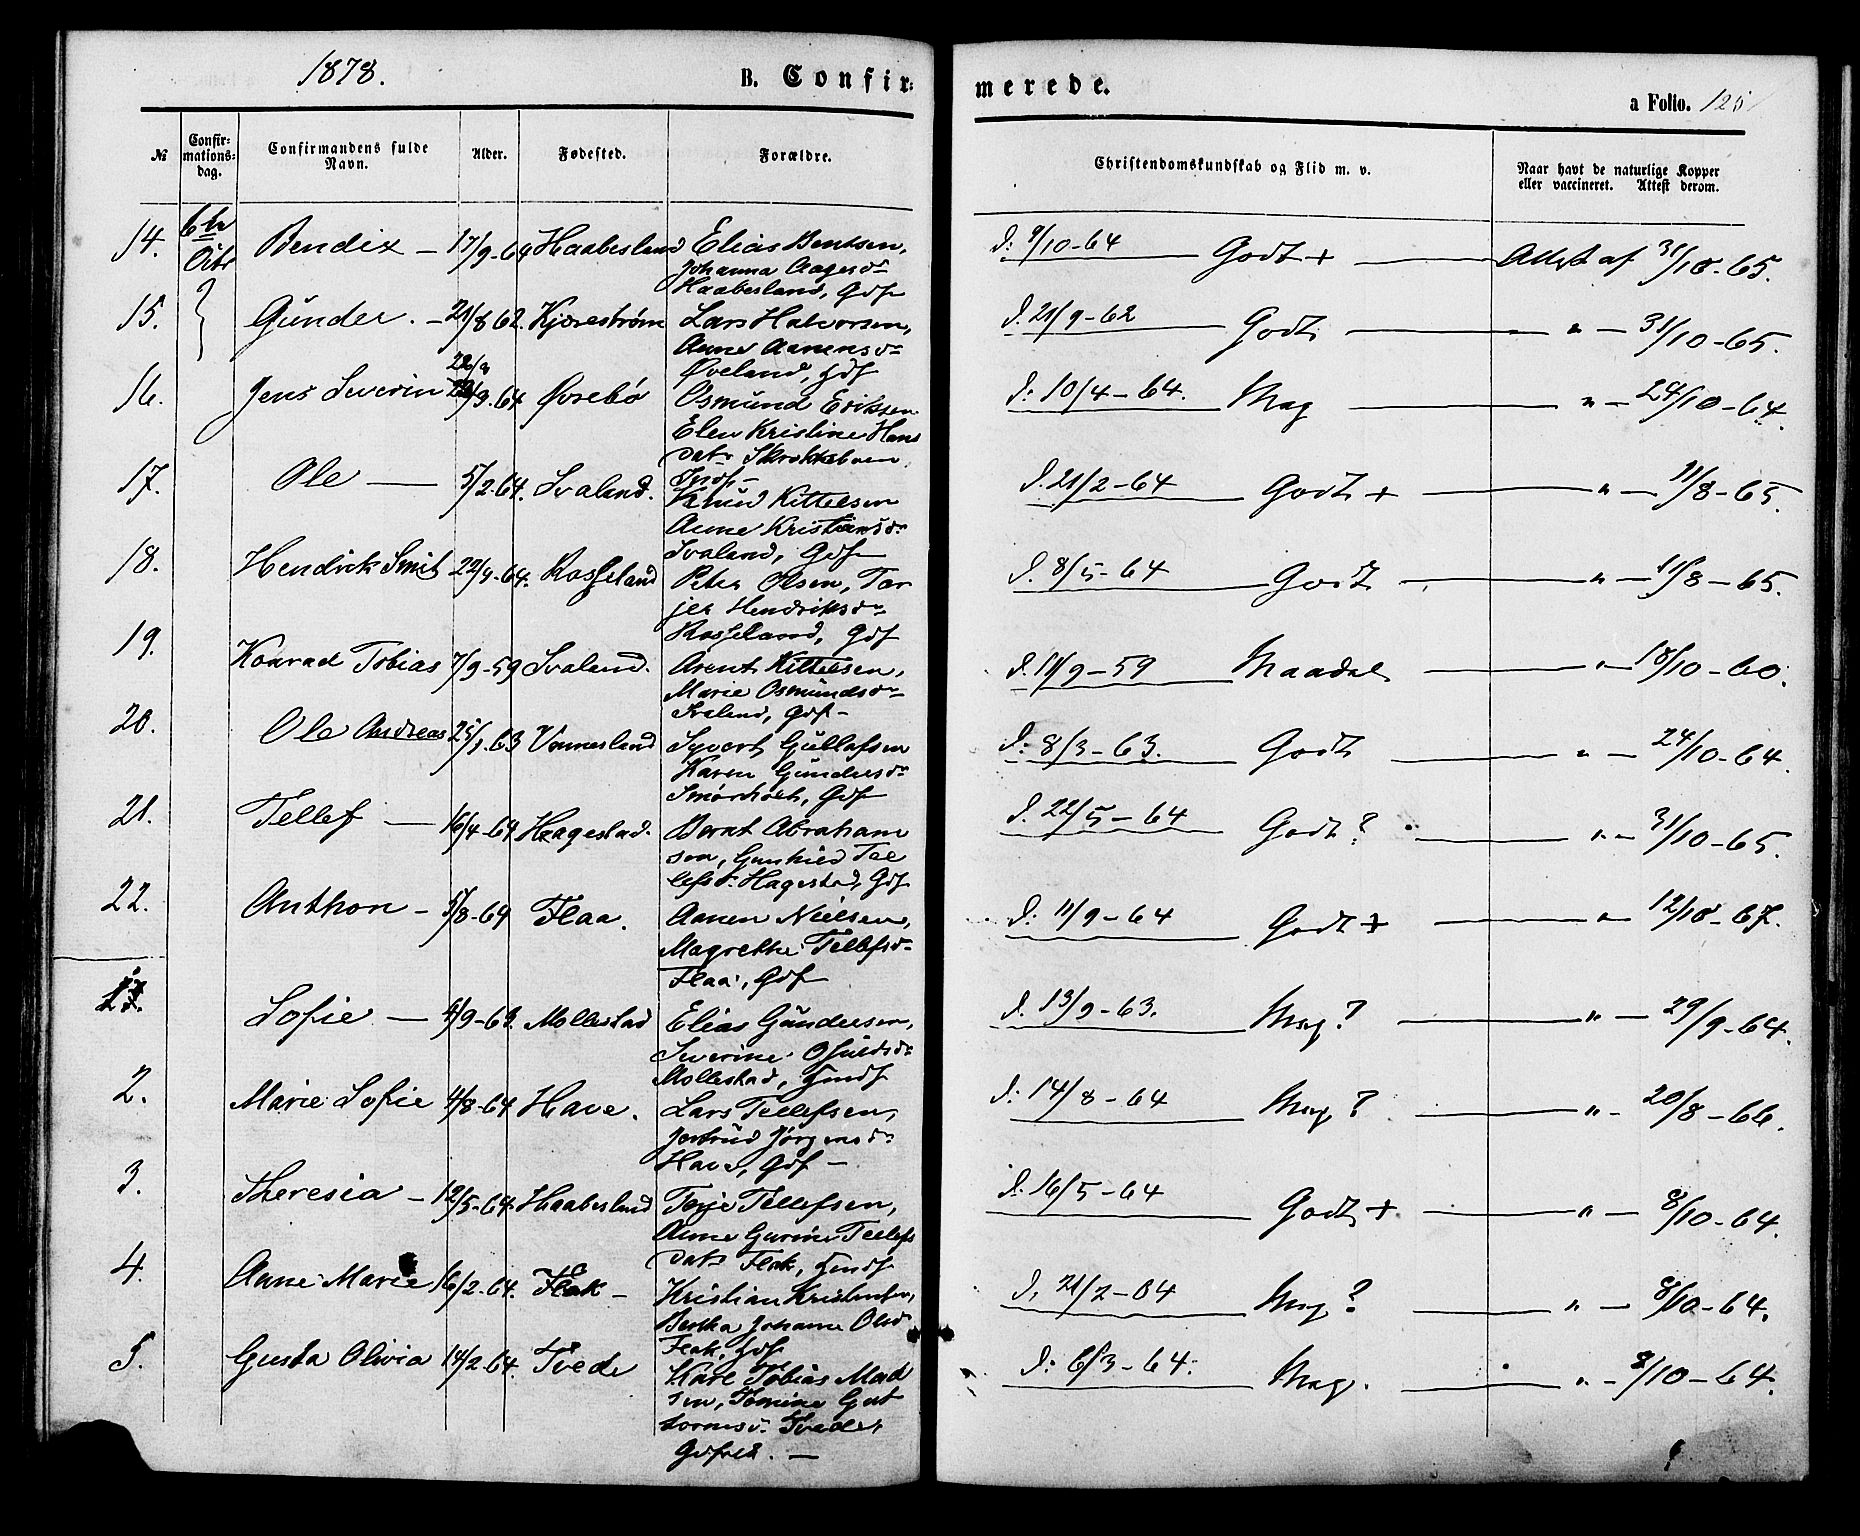 1878.
B. Confir-
merede.
a Folio. 125
№
Confir-
mations-
dag.
Confirmandens fulde
Navn.
Alder.
Fødested.
Forældre.
Christendomskundskab og Flid m. v.
Naar havt de naturlige Kopper
eller vaccineret. Attest derom.
14. 6te Octbr Bendix — 17/9-64 Haabesland Elias Bentsen,
Johanna Aagesdr
Haabesland, Gdf
d: 9/10-64 Godt + — Attest af 31/10-65.
15. Gunder. — 21/8 62. Kjærestrøm Lars Halvorsen,
Anne Aanensdr
Øveland, Gdf
d. 21/9-62 Godt — " — 31/10-65.
16. Jens Severin 3.64 Øvrebø Osmund Eriksen
Elen Kristine Hans
datr
d: 10/4-64. Mag — " — 24/10-64.
17. Ole — 5/2-64. Ivaland. Knud Kittelsen
Anne Kristiansdr
Ivaland, Gdf
d. 21/2-64 Godt + — " — 11/8-65.
18. Hendrik Smit 22/4-64. Rosseland Peter Olsen, Tor
jer Hendriksdr
Rosseland, Gdf
d. 8/5-64 Godt — " — 11/8-65.
19. Konrad Tobias 7/9-59 Ivaland. Arent Kittelsen,
Marie Osmundsdr
Ivaland, Gdf —
d. 11/9-59 Maadel — " — 18/10-60.
20. Ole Andreas 25/1.63 Vonnesland Syvert Gullafsen
Karen Gundersdr
Gdf
d: 8/3-63. Godt " — 24/10-64.
21. Tellef — 16/4-64 Hagestad. Bernt Abraham
sen, Gunhild Tel
lefsd. Hagestad, Gdf
d. 22/5-64 Godt? " — 31/10-65.
22. Anthon — 5/8-64 Flaa. Aanen Nielsen,
Magrethe Tellefsd
Flaa, Gdf
d: 11/9-64 Godt + — " — 12/10-67.
Sofie — 4/9-63. Mollestad Elias Gundersen,
Severine Osuldsdr
Mollestad,
d. 13/9-63. Mag? — " — 29/9-64.
2. Marie Sofie 4/8-64 Have. Lars Tellefsen,
Jertrud Jørgensdr
Have, Gdf —
d: 14/8-64 Mag? — " — 20/8-66.
3. Theresia — 12/5-64. Haabesland Terje Tellefsen,
Anne Gurine Tellefs
datr Flak,
d: 16/5-64 Godt + — " — 8/10-64.
4. Anne Marie 16/2-64. Flak — Kristian Kristensen,
Bertha Johanne Olsd
Flak, Gdf
d, 21/2-64 Mag? — " — 8/10-64.
5. Gusta Olivia 14/2-64. Tvede Karl Tobias Mad
sen, Tomine Gut
tormsd. Tvede,
Gdfolk. —
d: 6/3-64. Mag. — " — 8/10-64.